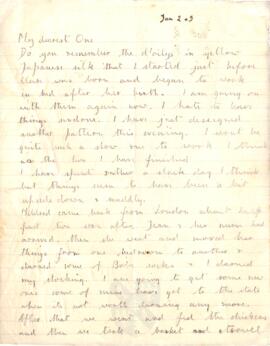 Jan 2nd
My dearest One
Do you remember the d'oileys in yellow
Japanese silk that I started just before
was born and began to work
in bed after her birth. I am going on
with them again now. I hate to leave
things undone. I have just designed
another pattern this evening. I wont be
quite such a slow one to work I think
as the two I have finished
I have spent rather a slack day I think
but things seem to have been a bit
upside down & muddly.
came back from London about half
past two soon after Jean & her nurse had
arrived, then she went and moved her
things from one bedroom to another &
darned some of Bob's socks & I darned
my stocking. I am going to get some new
ones some of mine have got to the state
when its not worth darning any more.
After that we went and fed the chickens
and then we took a basket and